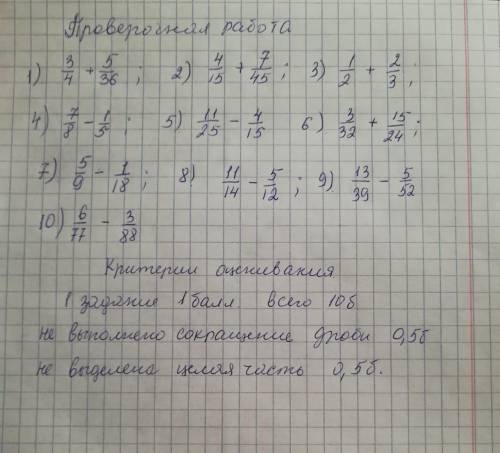 Проверочная работа
1) 3/4 + 5/36 ; 2) 4/15 + 7/45 ; 3) 1/2 + 2/3 ;
4) 7/8 - 1/5 ; 5) 11/25 - 4/15 6) 3/32 + 15/24 ;
7) 5/9 - 1/18 ; 8) 11/14 - 5/12 ; 9) 13/39 - 5/52
10) 6/77 - 3/88
Критерии оценивания
1 задание 1 балл всего 10б
не выполнено сокращение дроби 0,5б
не выделена целая часть 0,5б.